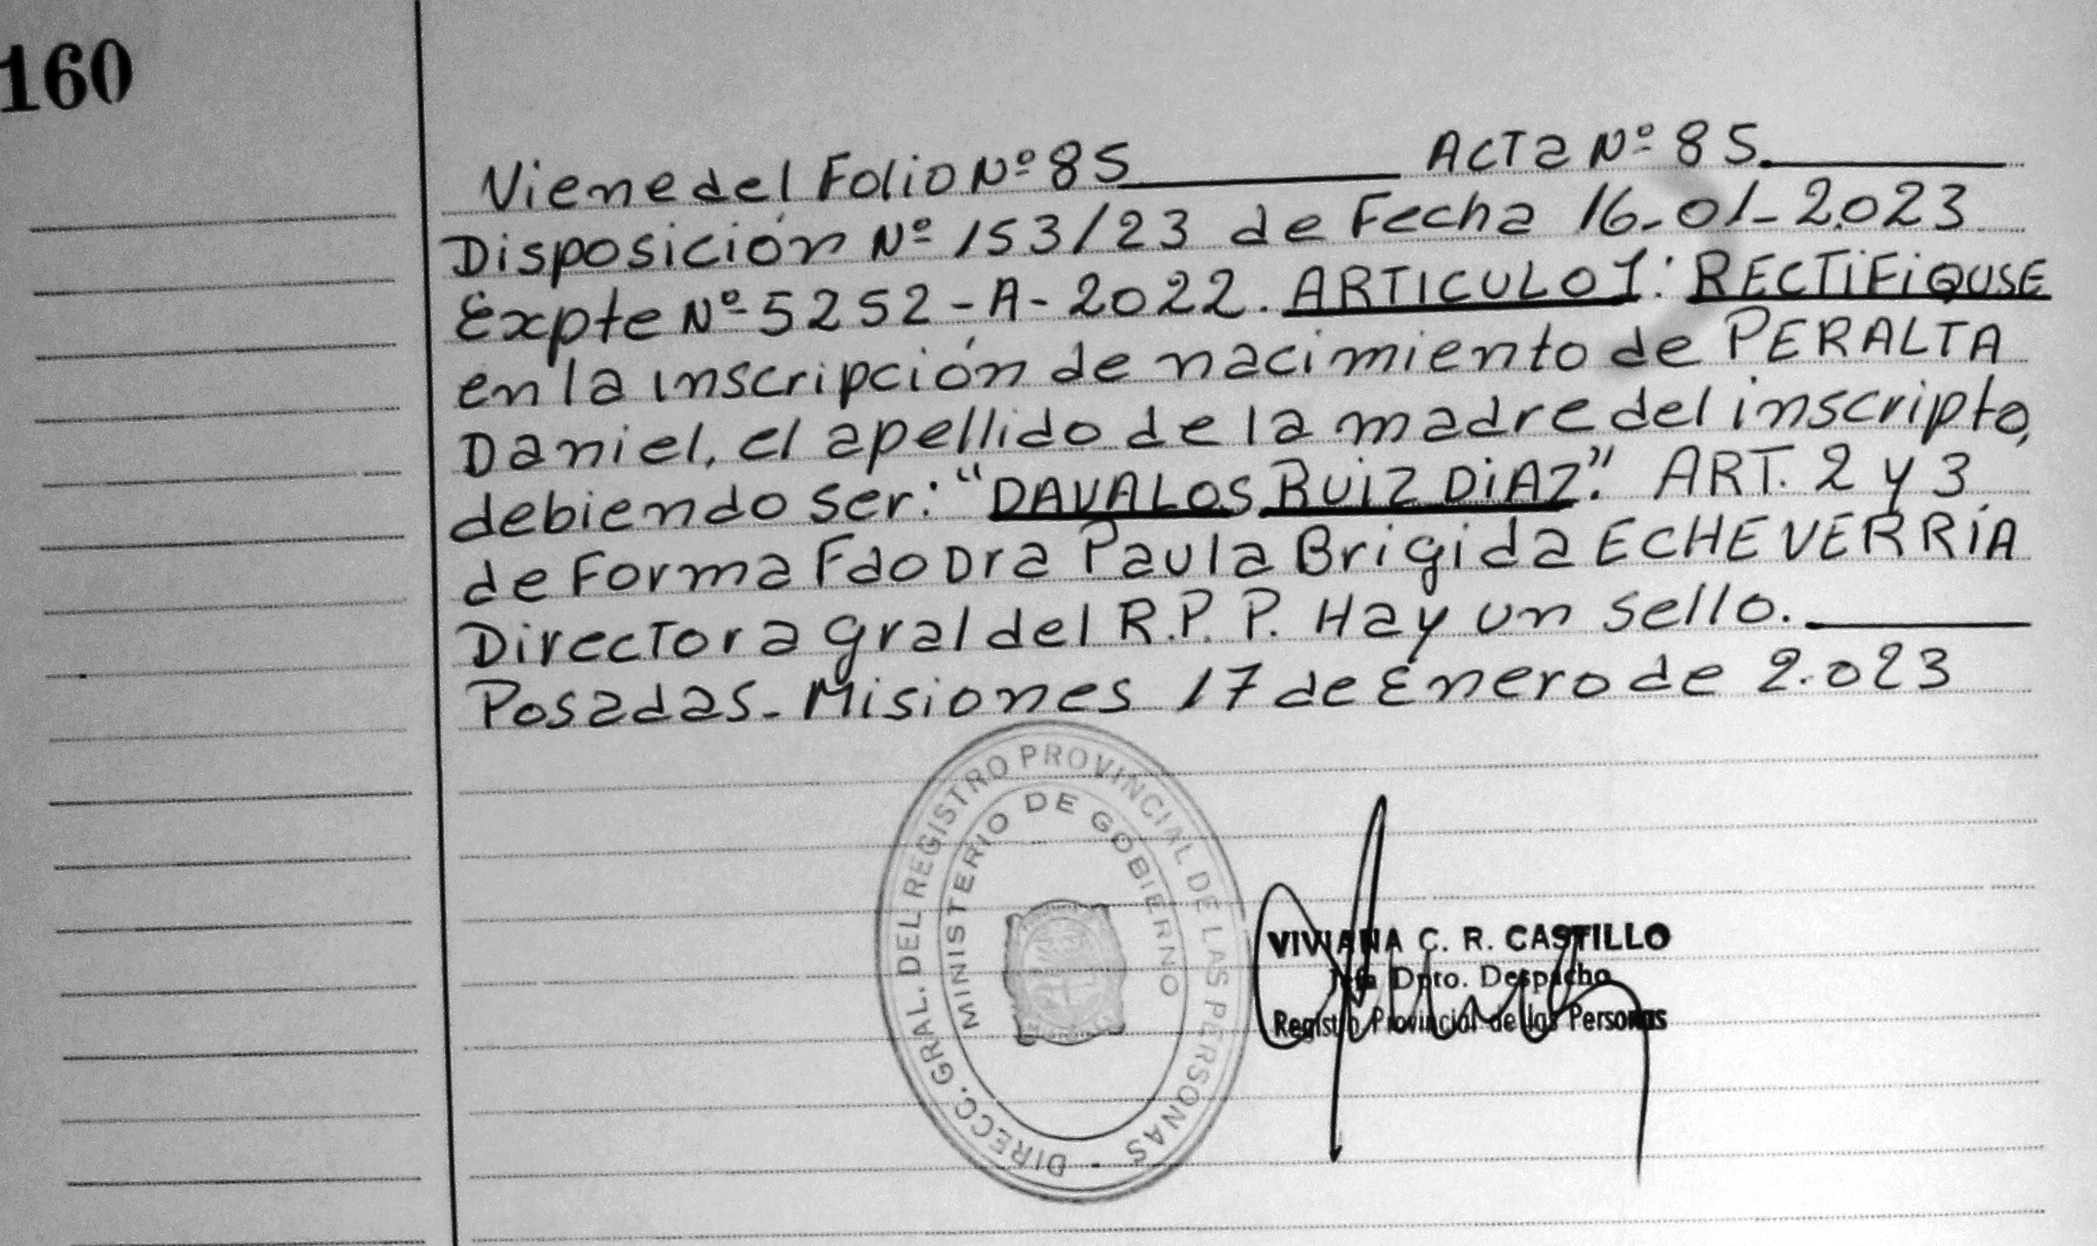 160
Viene del Folio Nº 85 Acta Nº 85
Disposición Nº 153/23 de Fecha 16-01-2.023
Expte Nº 5252-A-2022. ARTICULO 1: RECTIFIQUSE
en la inscripción de nacimiento de PERALTA
Daniel, el apellido de la madre del inscripto,
debiendo ser: "DAVALOS RUIZ DIAZ". ART. 2 y 3
de Forma Fdo Dra Paula Brigida ECHEVERRÍA
Directora gral del R.P.P. Hay un sello.
Posadas - Misiones 17 de Enero de 2.023
DIRECC. GRAL. DEL REGISTRO PROVINCIAL DE LAS PERSONAS
MINISTERIO DE GOBIERNO
VIVIANA C. R. CASTILLO
Jefa Dpto. Despacho
Registro Provincial de las Personas